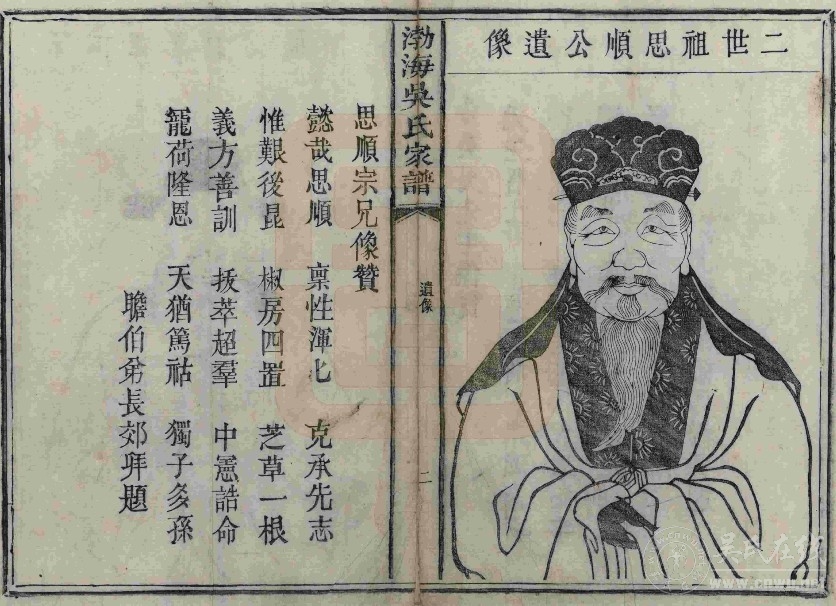 二世祖思順公遺像
渤海吳氏家譜
遺像
二
思順宗兄像贊
懿哉思順 稟性渾匕 克承先志
惟艱後昆 椒房四置 芝草一根
義方善訓 拔萃超羣 中憲誥命
寵荷隆恩 天猶篤祜 獨子多孫
瞻伯弟長郊拜題
吴氏在线